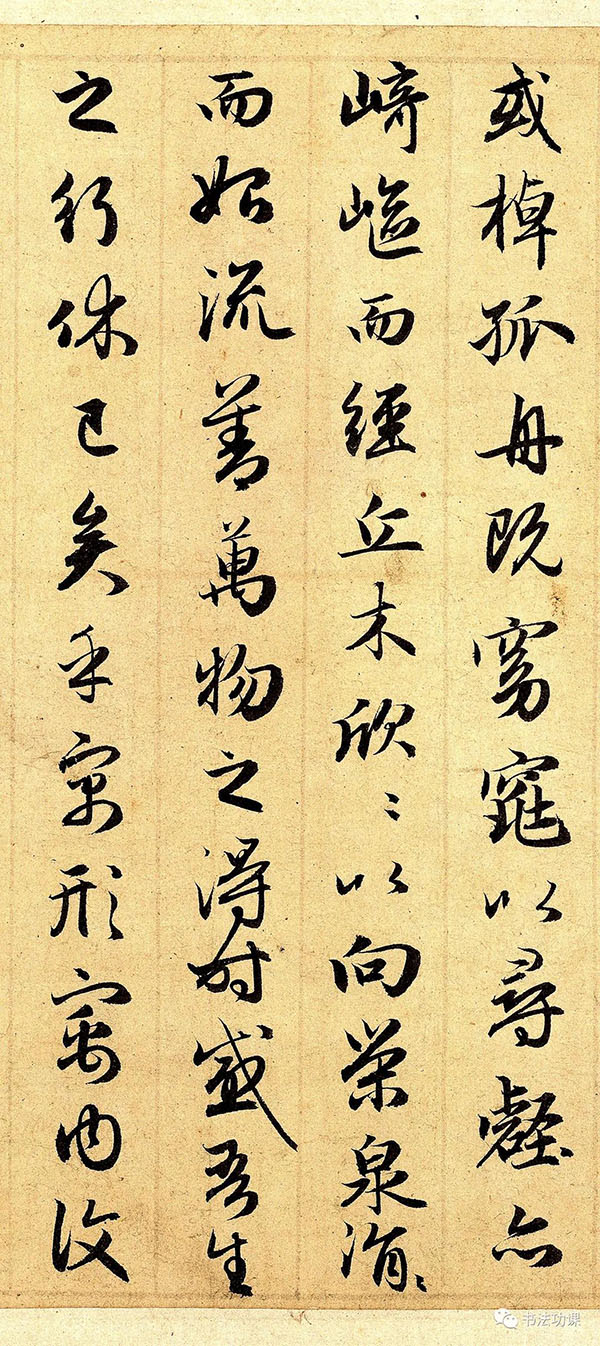 或棹孤舟既窈窕以尋壑亦
崎嶇而經丘木欣〻以向榮泉涓〻
而始流善萬物之得時感吾生
之行休已矣乎寓形寓內復
书法功课